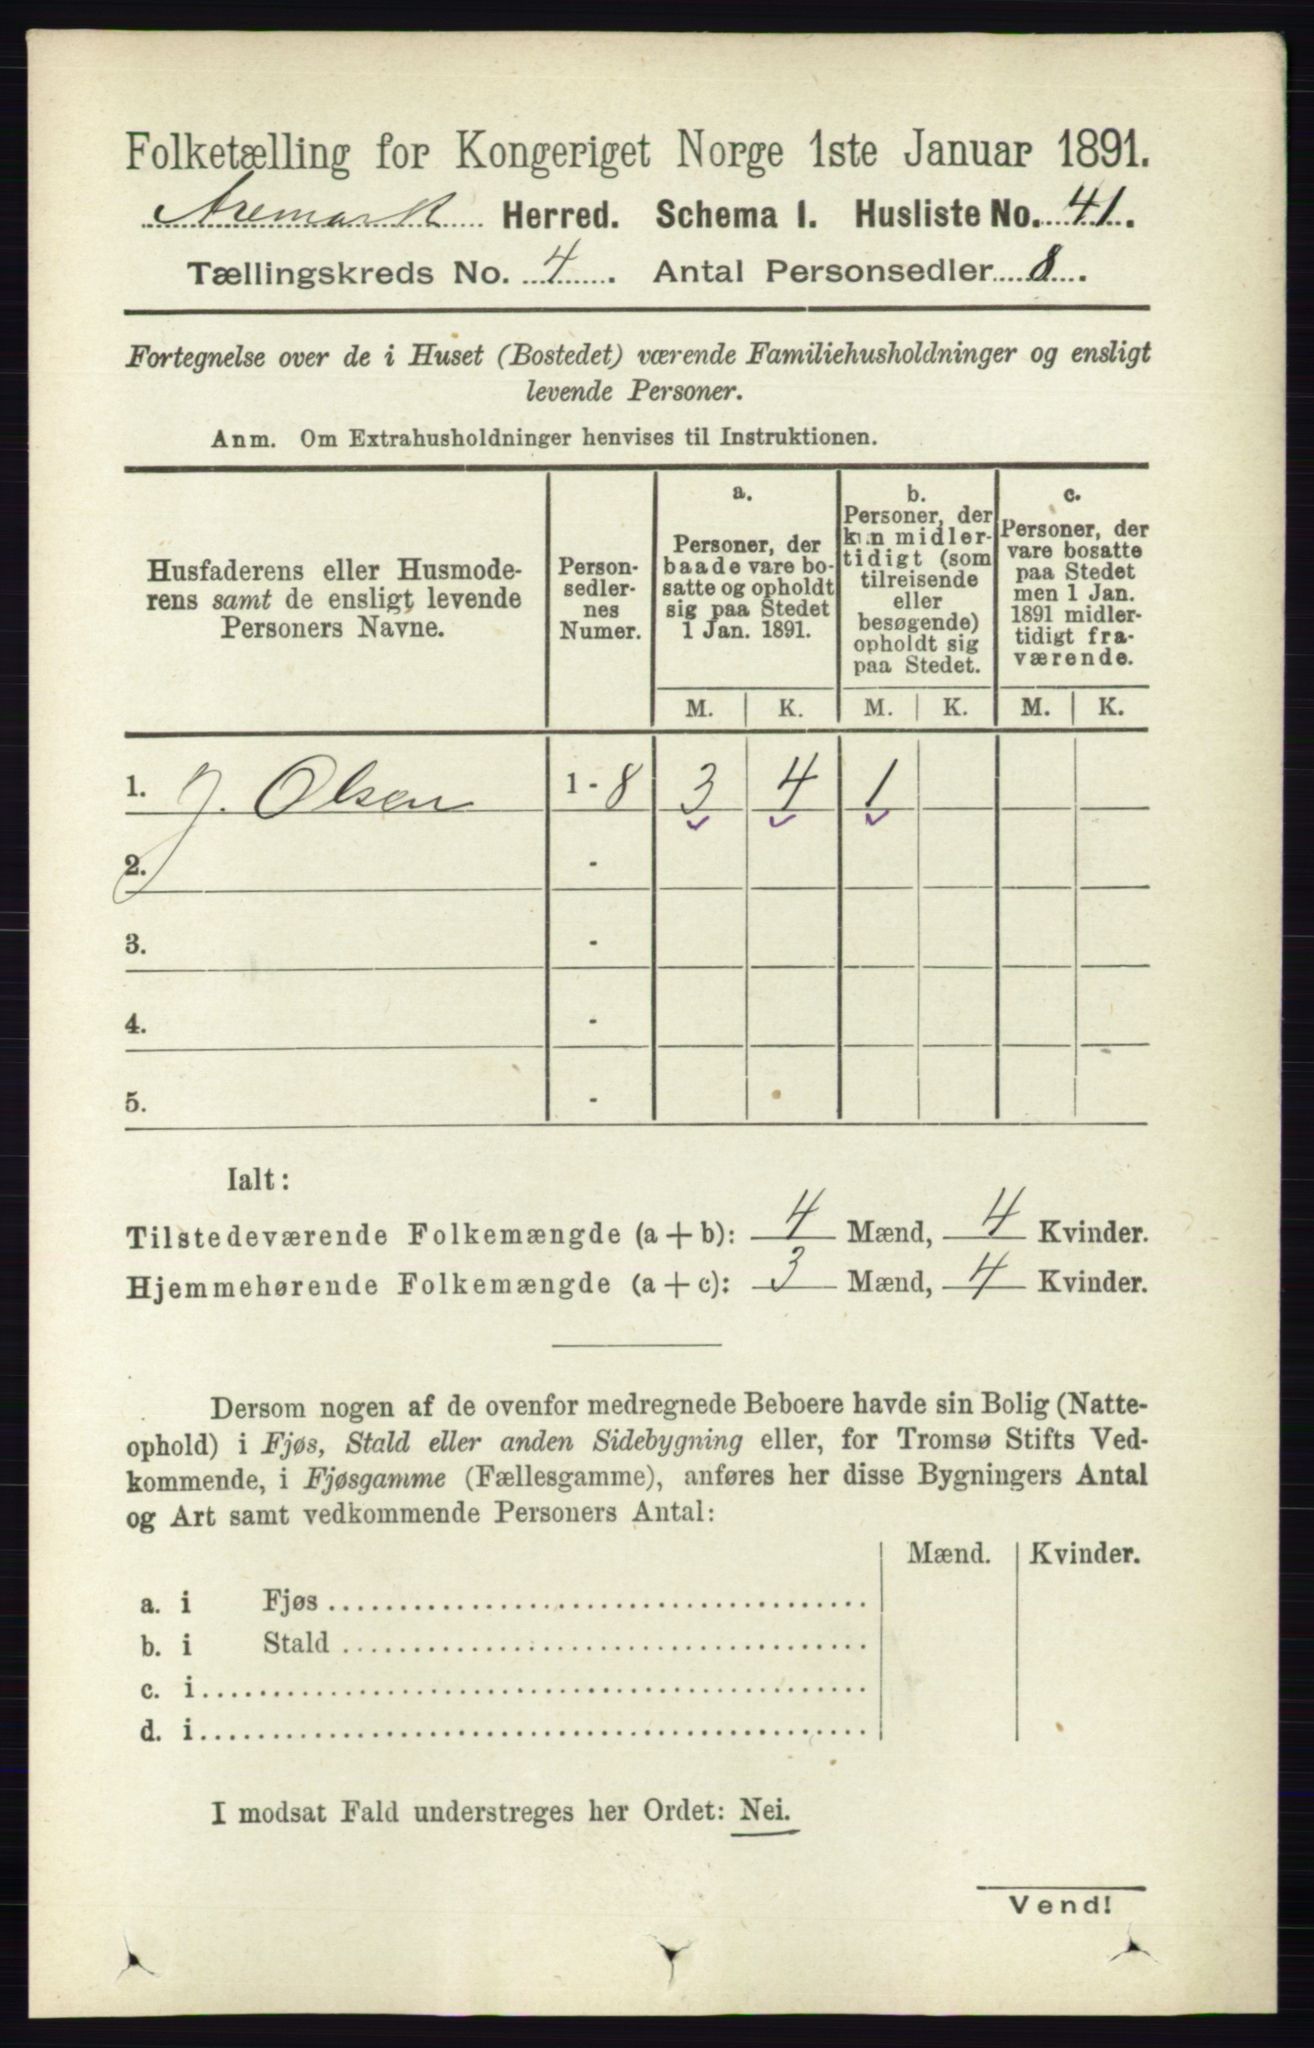 Folketælling for Kongeriget Norge 1ste Januar 1891.
Aremark Herred. Schema I. Husliste No. 41.
Tællingskreds No. 4. Antal Personsedler 8.
Fortegnelse over de i Huset (Bostedet) værende Familiehusholdninger og ensligt
levende Personer.
Anm. Om Extrahusholdninger henvises til Instruktionen.
Husfaderens eller Husmode-
rens samt de ensligt levende
Personers Navne.
Person-
sedler-
nes
Numer.
a.
Personer, der
baade vare bo-
satte og opholdt
sig paa Stedet
1 Jan. 1891.
b.
Personer, der
kun midler-
tidigt (som
tilreisende
eller
besøgende)
opholdt sig
paa Stedet.
c.
Personer, der
vare bosatte
paa Stedet
men 1 Jan.
1891 midler-
tidigt fra-
værende.
M. K. M. K. M. K.
1. J. Olsen 1 - 8 3 4 1
2. -
3. -
4. -
5. -
Ialt:
Tilstedeværende Folkemængde (a + b): 4 Mænd, 4 Kvinder.
Hjemmehørende Folkemængde (a + c): 3 Mænd, 4 Kvinder.
Dersom nogen af de ovenfor medregnede Beboere havde sin Bolig (Natte-
ophold) i Fjøs, Stald eller anden Sidebygning eller, for Tromsø Stifts Ved-
kommende, i Fjøsgamme (Fællesgamme), anføres her disse Bygningers Antal
og Art samt vedkommende Personers Antal:
Mænd. Kvinder.
a. i Fjøs
b. i Stald
c. i
d. i
I modsat Fald understreges her Ordet: Nei.
Vend!